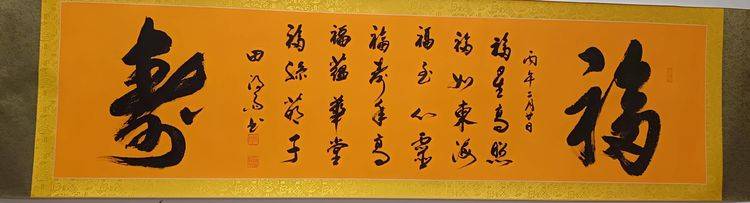 福
丙午二月廿日
福星高照
福如東海
福至心靈
福壽年高
福蘊華堂
福
田
书
壽